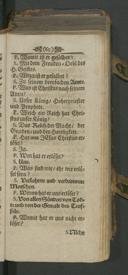 F. Womit ist er gesalbet?
A. Mit dem Freuden-Oele des
H. Geistes.
F. Wozu ist er gesalbet?
A. Zu seinem dreyfachen Amte.
F. Was ist Christus nach seinem
Amte?
A. Unser König, Hoherpriester
und Prophet.
F. Welch ein Reich hat Chri-
stus unser König?
A. Das Reich der Macht, der
Gnaden und der Herrlichkeit.
F. Hat uns JEsus Christus er-
löset?
A. Ja.
F. Wen hat er erlöset?
A. Uns.
F. Was sind wir, die wir erlö-
set seyn?
A. Verlohrne und verdammte
Menschen.
F. Wovon hat er uns erlöset?
A. Von allen Sünden vom Tode
und von der Gewalt des Teuf-
fels.
F. Womit hat er uns nicht er-
löset?
A. Nicht